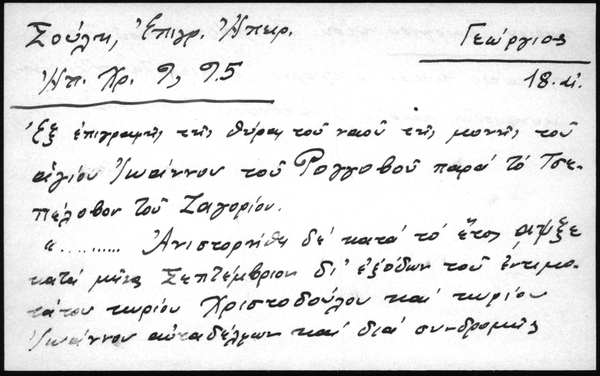 Σούλη, Ἐπιγρ. Ἠπειρ.
Γεώργιος
Ἠπ. Χρ. 9, 95
18. αἰ.
Ἐξ ἐπιγραφῆς τῆς θύρας τοῦ ναοῦ τῆς μονῆς τοῦ
ἁγίου Ἰωάννου τοῦ Ρογγοβοῦ παρά τό Τσε-
πέλοβον τοῦ Ζαγορίου.
«.......... Ἀνιστορήθη δέ κατά τό ἔτος αψξε
κατά μῆνα Σεπτέμβριον δι' ἐξόδων τοῦ ἐντιμο-
τάτου κυρίου Χριστοδούλου καί κυρίου
Ἰωάννου αὐταδέλφων καί διά συνδρομῆς